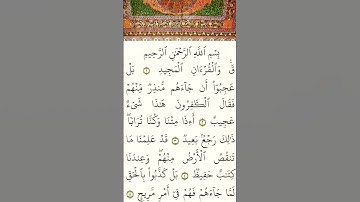 بِسْمِ ٱللَّهِ ٱلرَّحْمَٰنِ ٱلرَّحِيمِ
قٓ ۚ وَٱلْقُرْءَانِ ٱلْمَجِيدِ ١ بَلْ
عَجِبُوٓا۟ أَن جَآءَهُم مُّنذِرٌ مِّنْهُمْ
فَقَالَ ٱلْكَٰفِرُونَ هَٰذَا شَىْءٌ
عَجِيبٌ ٢ أَءِذَا مِتْنَا وَكُنَّا تُرَابًا ۖ
ذَٰلِكَ رَجْعٌۢ بَعِيدٌ ٣ قَدْ عَلِمْنَا مَا
تَنقُصُ ٱلْأَرْضُ مِنْهُمْ ۖ وَعِندَنَا
كِتَٰبٌ حَفِيظٌۢ ٤ بَلْ كَذَّبُوا۟ بِٱلْحَقِّ
لَمَّا جَآءَهُمْ فَهُمْ فِىٓ أَمْرٍ مَّرِيجٍ ٥